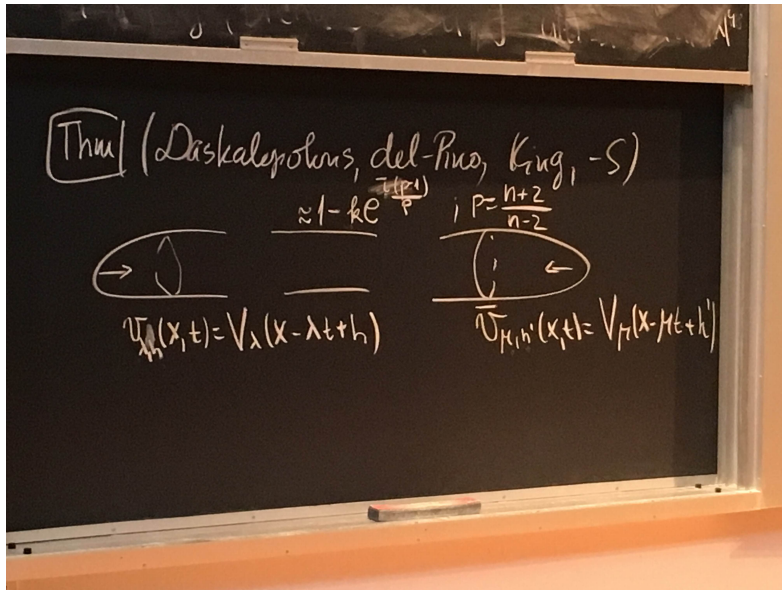 Thm (Daskalopolous, del-Pino, King, -S)
≈ 1-ke^{τ(p-1)/p} ; p = \frac{n+2}{n-2}
v_{λ,h}(x,t) = V_λ(x-λt+h)
\bar{v}_{μ,h'}(x,t) = V_μ(x-μt+h')